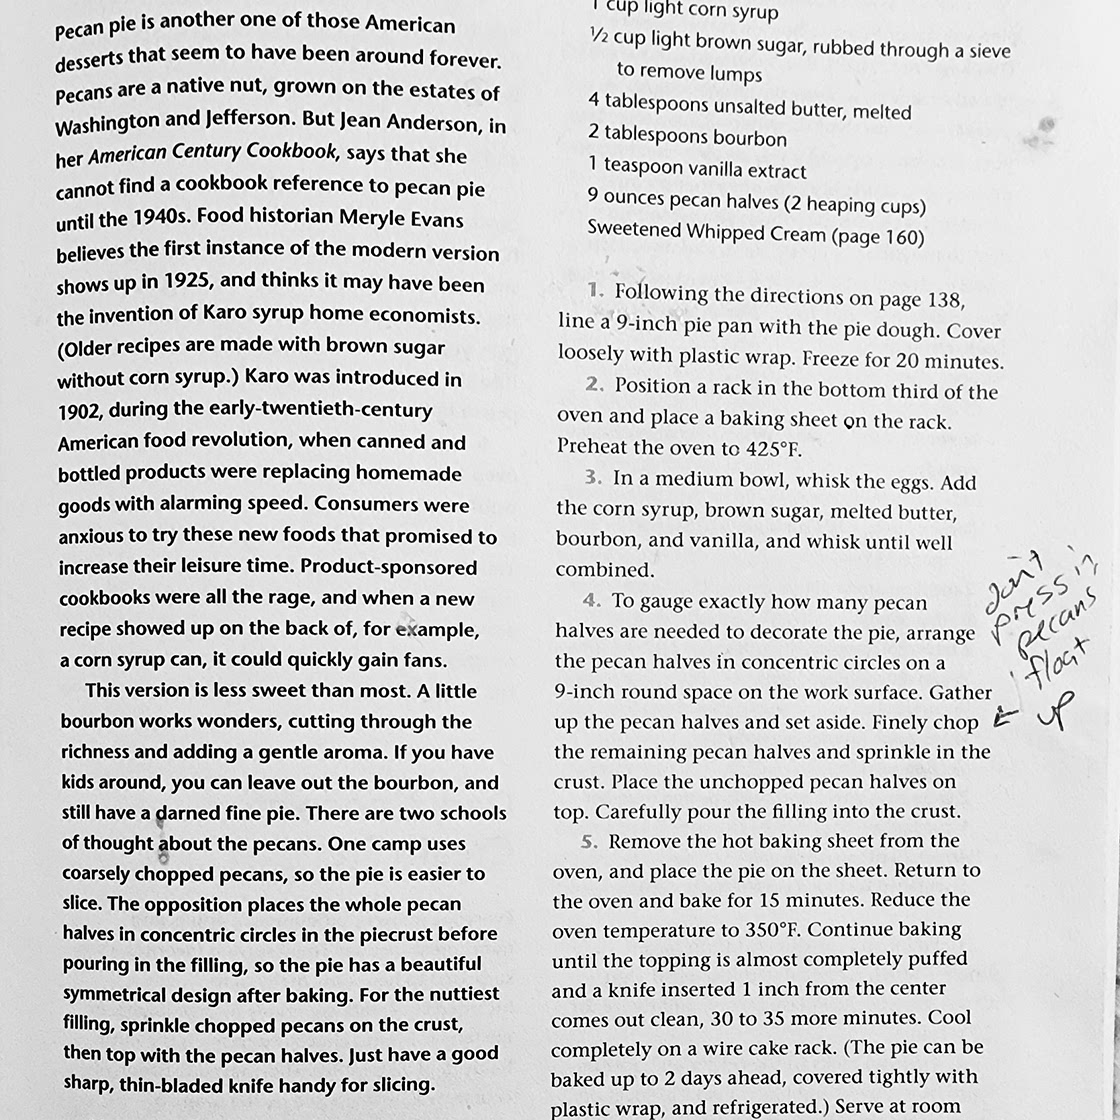 Pecan pie is another one of those American
desserts that seem to have been around forever.
Pecans are a native nut, grown on the estates of
Washington and Jefferson. But Jean Anderson, in
her American Century Cookbook, says that she
cannot find a cookbook reference to pecan pie
until the 1940s. Food historian Meryle Evans
believes the first instance of the modern version
shows up in 1925, and thinks it may have been
the invention of Karo syrup home economists.
(Older recipes are made with brown sugar
without corn syrup.) Karo was introduced in
1902, during the early-twentieth-century
American food revolution, when canned and
bottled products were replacing homemade
goods with alarming speed. Consumers were
anxious to try these new foods that promised to
increase their leisure time. Product-sponsored
cookbooks were all the rage, and when a new
recipe showed up on the back of, for example,
a corn syrup can, it could quickly gain fans.
This version is less sweet than most. A little
bourbon works wonders, cutting through the
richness and adding a gentle aroma. If you have
kids around, you can leave out the bourbon, and
still have a darned fine pie. There are two schools
of thought about the pecans. One camp uses
coarsely chopped pecans, so the pie is easier to
slice. The opposition places the whole pecan
halves in concentric circles in the piecrust before
pouring in the filling, so the pie has a beautiful
symmetrical design after baking. For the nuttiest
filling, sprinkle chopped pecans on the crust,
then top with the pecan halves. Just have a good
sharp, thin-bladed knife handy for slicing.
1 cup light corn syrup
½ cup light brown sugar, rubbed through a sieve
to remove lumps
4 tablespoons unsalted butter, melted
2 tablespoons bourbon
1 teaspoon vanilla extract
9 ounces pecan halves (2 heaping cups)
Sweetened Whipped Cream (page 160)
1. Following the directions on page 138,
line a 9-inch pie pan with the pie dough. Cover
loosely with plastic wrap. Freeze for 20 minutes.
2. Position a rack in the bottom third of the
oven and place a baking sheet on the rack.
Preheat the oven to 425°F.
3. In a medium bowl, whisk the eggs. Add
the corn syrup, brown sugar, melted butter,
bourbon, and vanilla, and whisk until well
combined.
4. To gauge exactly how many pecan
halves are needed to decorate the pie, arrange
the pecan halves in concentric circles on a
9-inch round space on the work surface. Gather
up the pecan halves and set aside. Finely chop
the remaining pecan halves and sprinkle in the
crust. Place the unchopped pecan halves on
top. Carefully pour the filling into the crust.
5. Remove the hot baking sheet from the
oven, and place the pie on the sheet. Return to
the oven and bake for 15 minutes. Reduce the
oven temperature to 350°F. Continue baking
until the topping is almost completely puffed
and a knife inserted 1 inch from the center
comes out clean, 30 to 35 more minutes. Cool
completely on a wire cake rack. (The pie can be
baked up to 2 days ahead, covered tightly with
plastic wrap, and refrigerated.) Serve at room
don't
press in
pecans
float
← up